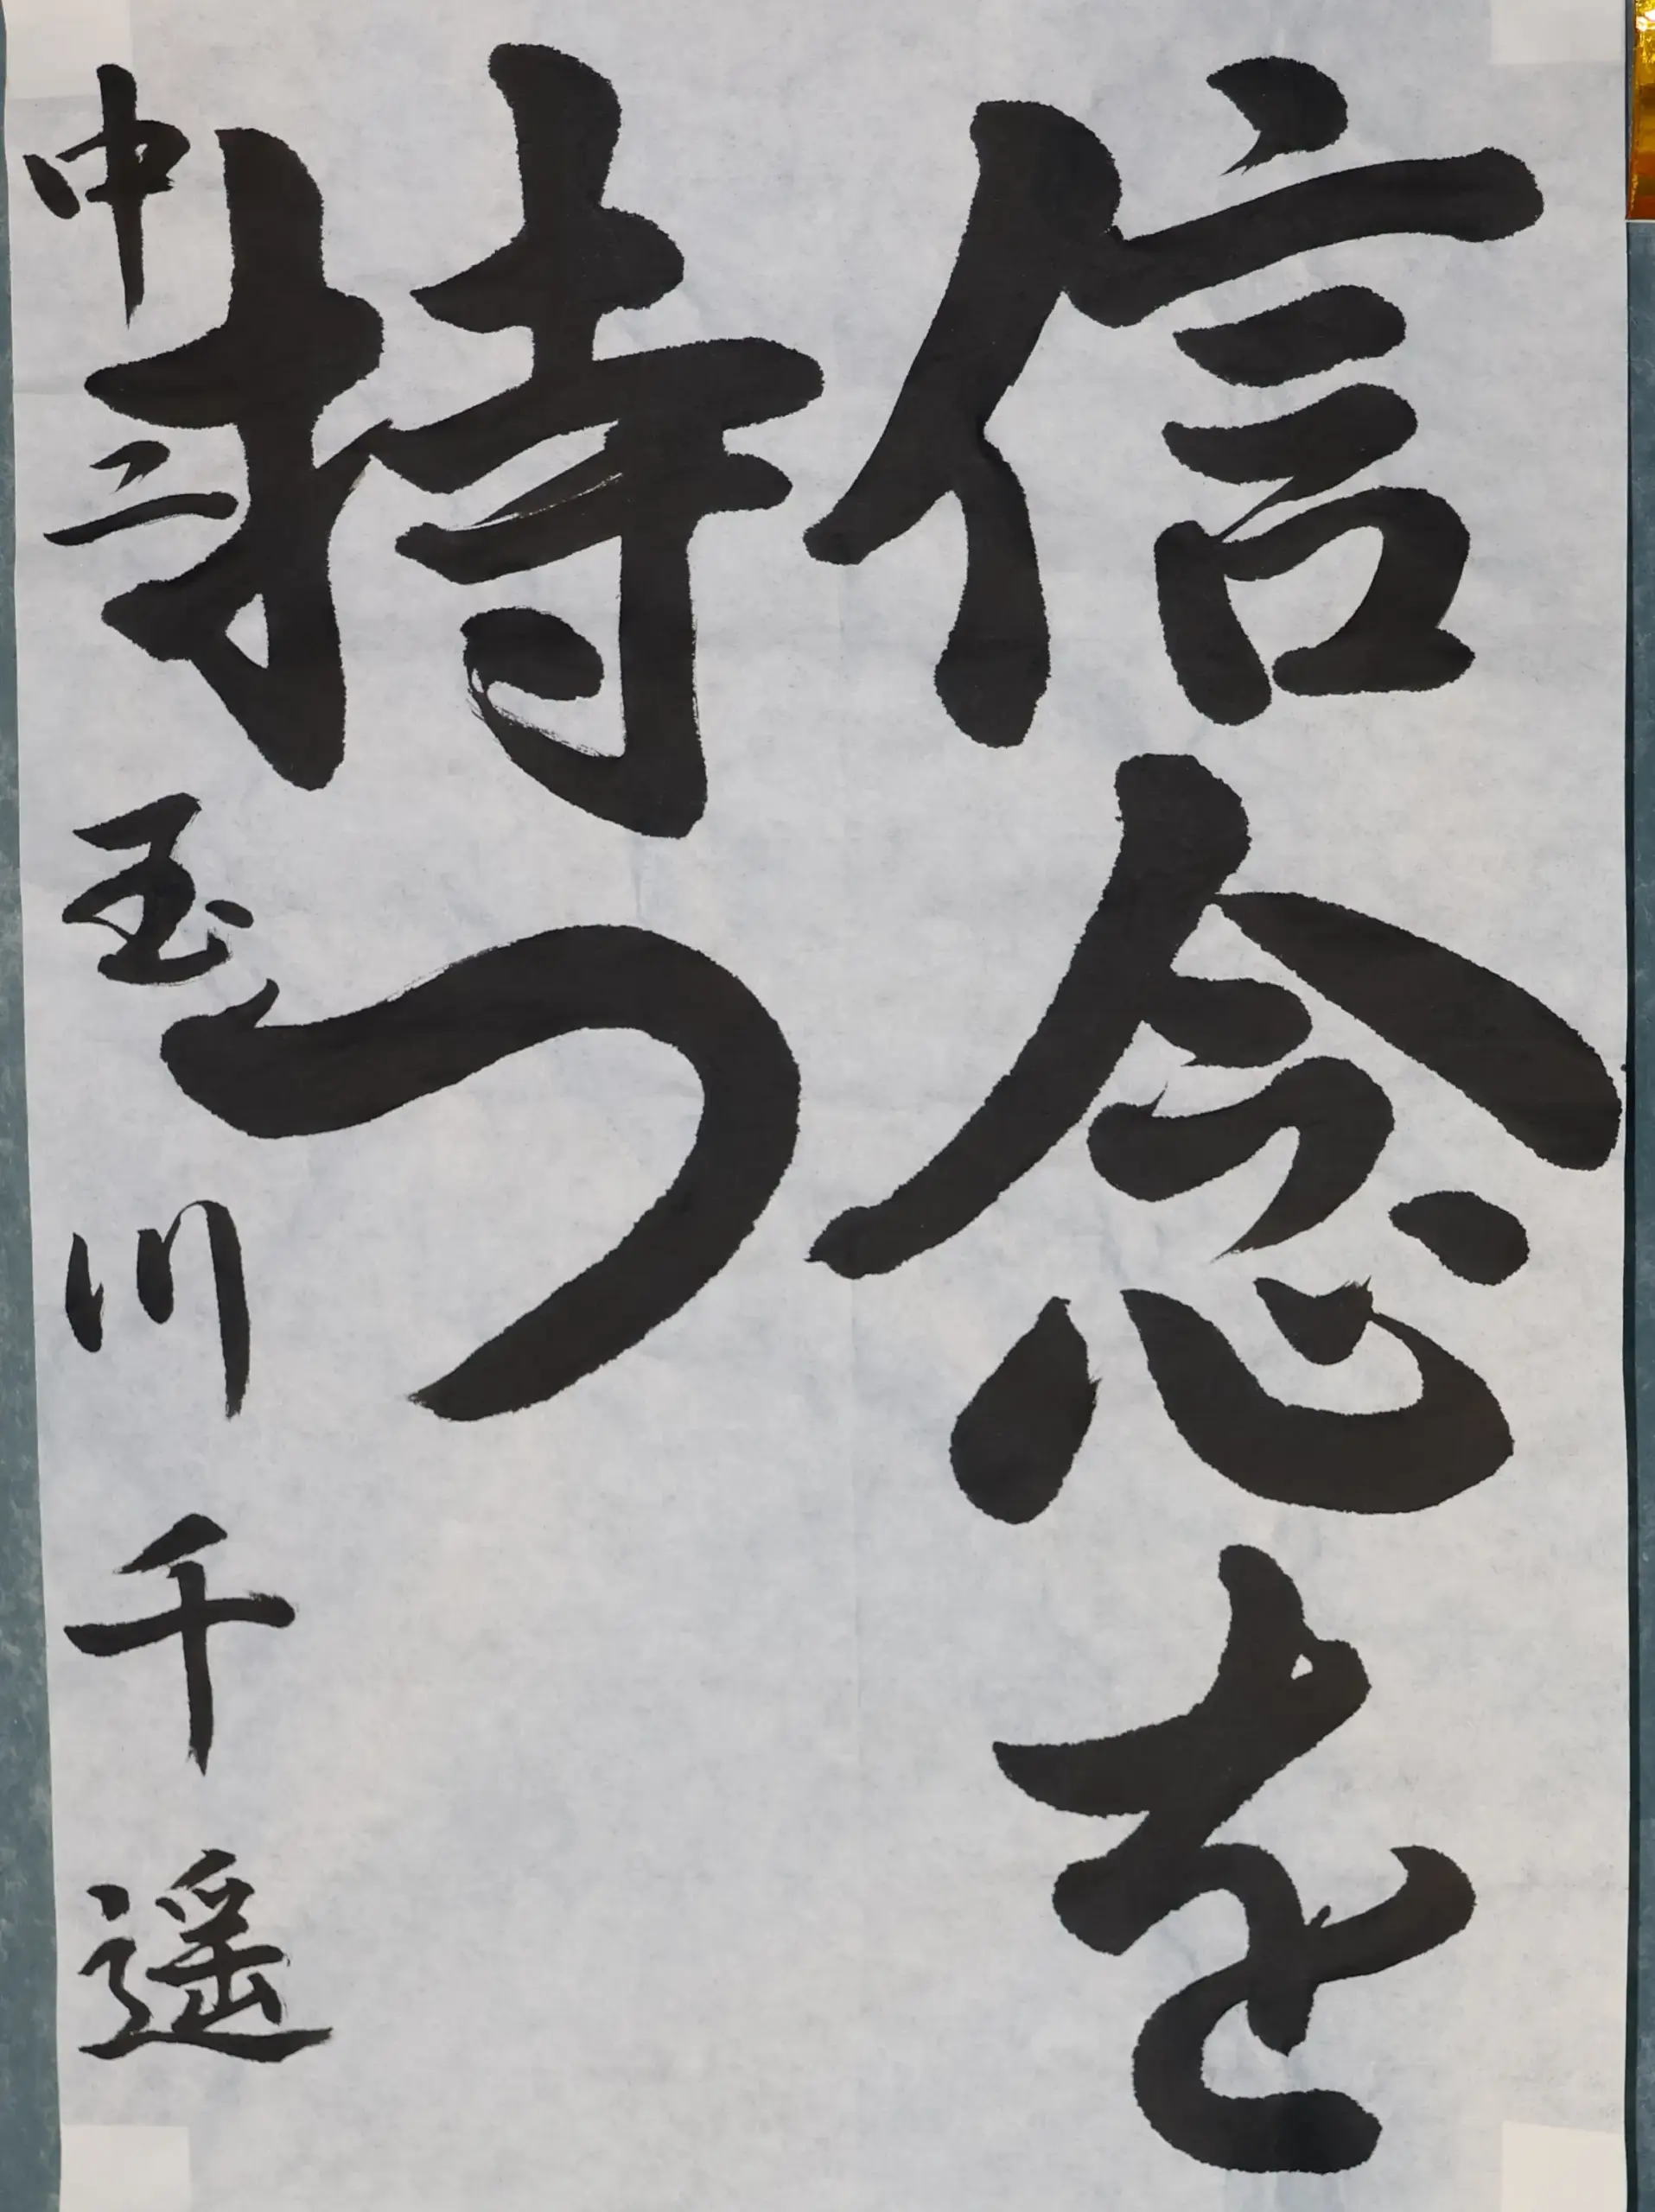 信念を
持つ
中二 玉川千遥